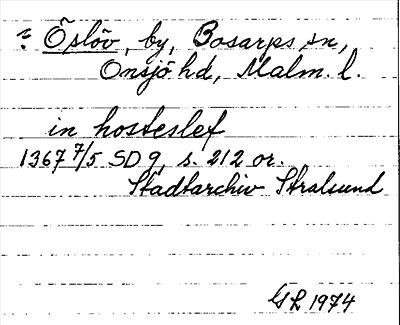 ? Öslöv, by, Bosarps sn,
Onsjö hd, Malm. l.
in hosteslef
1367 7/5 SD 9, s. 212 or.
Stadtarchiv Stralsund
GL 1974